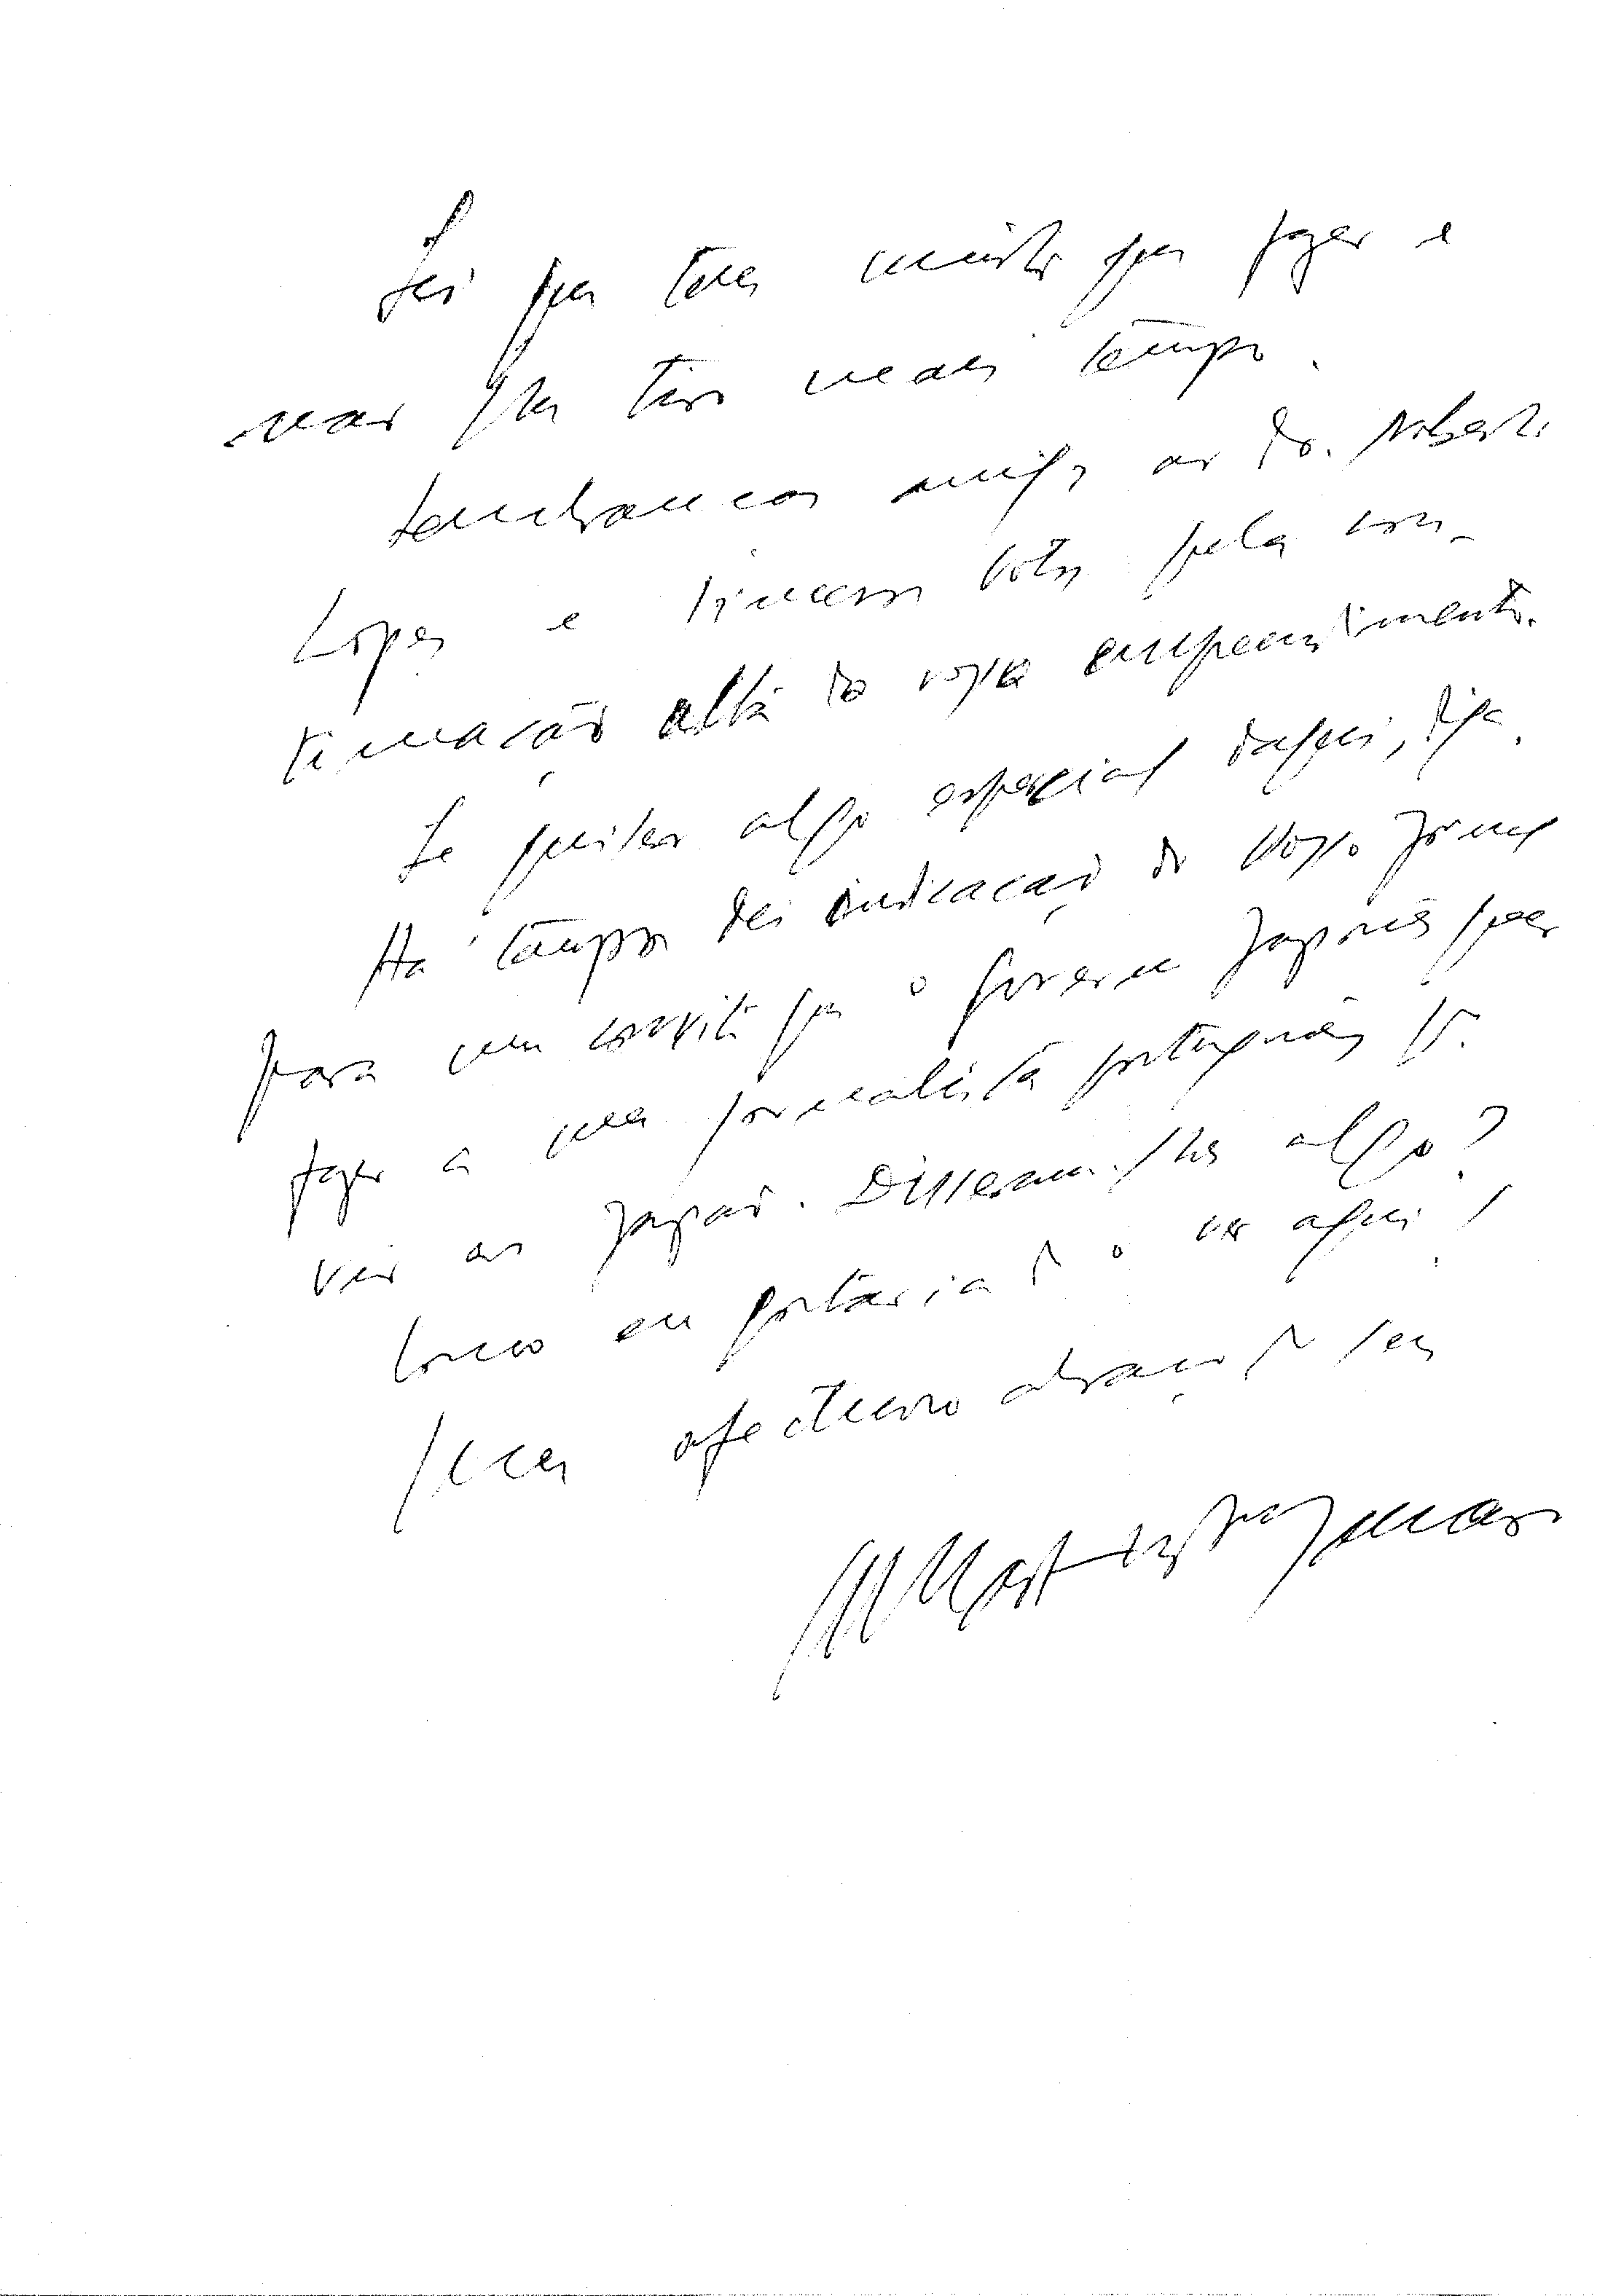 Sei que tem muito que fazer e
não lhe tiro mais tempo.
Lembranças amigas ao Dr. Norberto
Lopes e sinceros votos pela con-
tinuação alta do vosso empreendimento.
Se quiser algo especial daqui, diga.
Há tempos dei indicação do vosso jornal
para um convite que o governo japonês quer
fazer a um jornalista português p.
vir ao Japão. Disseram-lhe algo?
Como eu gostaria de o ver aqui!
Um afectuoso abraço do seu